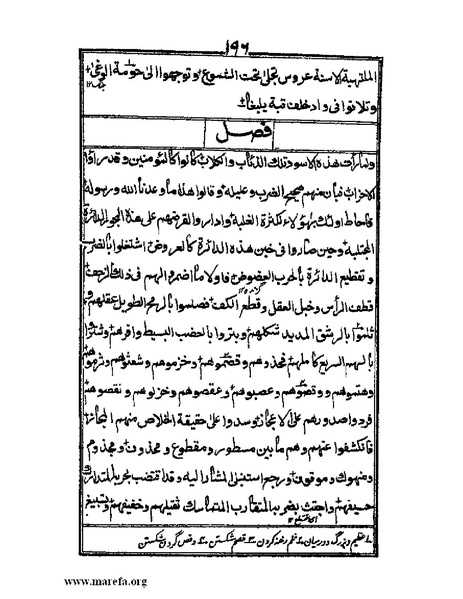 ١٩٦
الملتهبة الاسنة عروس تجلى تحت الشموع وتوجهوا الى حومة الوغى
جنگ ١٢
وتلاقوا فى واد خلف قبة يلبغا
فصل
ولما رأت هذه الاسود تلك الذئاب والكلاب كانوا كالمؤمنين وقد رأوا
الاحزاب فبان منهم صحيح الضرب وعليله وقالوا هذا ما وعدنا الله ورسوله
فاحاط اولئك بهؤلاء لكثرة الغلبة وادار والقرضهم على هذة البحور الدائرة
المجتلبة وحين صاروا فى خبن هذه الدائرة كالعروض اشتغلوا بالضرب
وتقطيع الدائرة بالحرب العضوض فاول ما اضمروا لهم فى ذلك الزحف
قطف الرأس وخبل العقل وقطع الكف فصلموا بالرمح الطويل عقلهم و
ثلموا بالرشق المديد شكلهم وبتروا بالعضب البسيط وافرهم وشتروا
بالسهم السريع كاملهم فخذوهم وقصموهم وخزموهم وشعثوهم وثرموهم
وهتموهم ووقصوهم وعصبوهم وعقصوهم وخزلوهم ونقصوهم
فردوا صدورهم على الاعجاز وسدوا على حقيقة الخلاص منهم المجاز
فانكشفوا عنهم وهم ما بين مسطور ومقطوع ومحذوف ومجذوم
ومنهوك وموقوف ورجع استنبل المشار اليه وقد اقتضب بحربه المتدارك
خفيفهم واجتث بضربه المتقارب المتماسك ثقيلهم وخفيفهم وتسبيغ
خرم رخنه کردن قصم شکستن وقص گردن شکستن
www.marefa.org